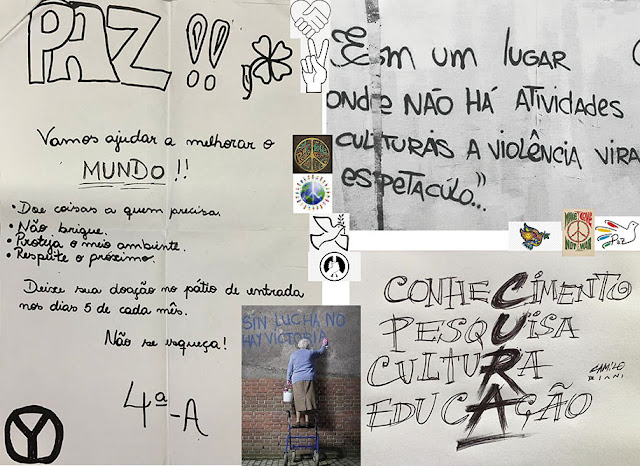 PAZ!!
Vamos ajudar a melhorar o
MUNDO!!
• Doe coisas a quem precisa.
• Não brigue.
• Proteja o meio ambiente.
• Respeite o próximo.
Deixe sua doação no pátio de entrada
nos dias 5 de cada mês.
Não se esqueça!
4ª-A
"Em um LUGAR
ONDE NÃO HÁ ATIVIDADES
CULTURAIS A VIOLÊNCIA VIRA
ESPETACÚLO..."
MAKE LOVE
NOT WAR
Paz
SIN LUCHA NO
HAY VICTORIA
CONHECIMENTO
PESQUISA
CULTURA
EDUCAÇÃO
CAMILO
RIANI